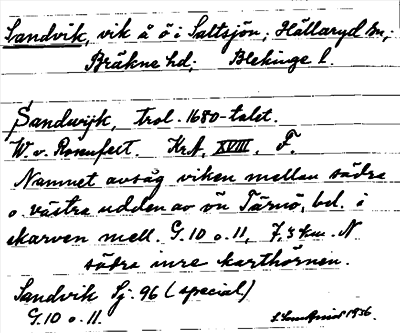 Sandvik, vik å ö i Saltsjön; Hällaryd sn;
Bräkne hd; Blekinge l.
Sandwijk, trol. 1680-talet.
W. v. Rosenfelt. Krt. XVIII. F.
Namnet avsåg viken mellan södra
o. västra udden av ön Tärnö, bel. i
skarven mell. G.10 o. 11, 7,5 km. N
södra inre karthörnen.
Sandvik Sj. 96 (special)
G.10 o. 11. 1936.